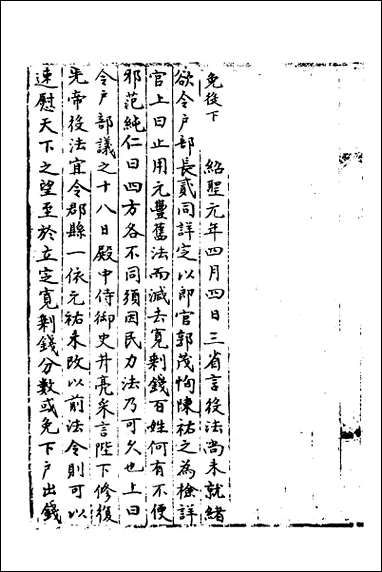 免役下　紹聖元年四月四日三省言役法尚未就緒
欲令户部長貳同詳定以郎官郭茂恂陳祐之為檢詳
官上曰止用元豐舊法而減去寬剩錢百姓何有不便
邪范純仁曰四方各不同須因民力法乃可久也上曰
令户部議之十八日殿中侍御史井亮采言陛下修復
先帝役法宜令郡縣一依元祐未改以前法令則可以
速慰天下之望至於立定寬剩錢分數或免下户出錢